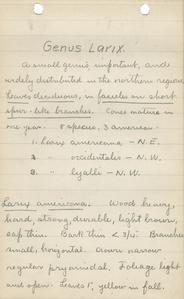 Genus Larix.
A small genus, important, and
widely distributed in the northern regions
leaves deciduous, in fascicles on short
spur-like branches. Cones mature in
one year. 8 species, 3 american -
1. Larix americana - N.E.
2. " occidentalis - N.W.
3. " lyalli - N.W.
Larix americana. Wood heavy,
hard, strong, durable, light brown,
sap thin. Bark thin < 3/4". Branches
small, horizontal. Crown narrow
regular pryamidal. Foliage light
and open. Leaves 1", yellow in fall.